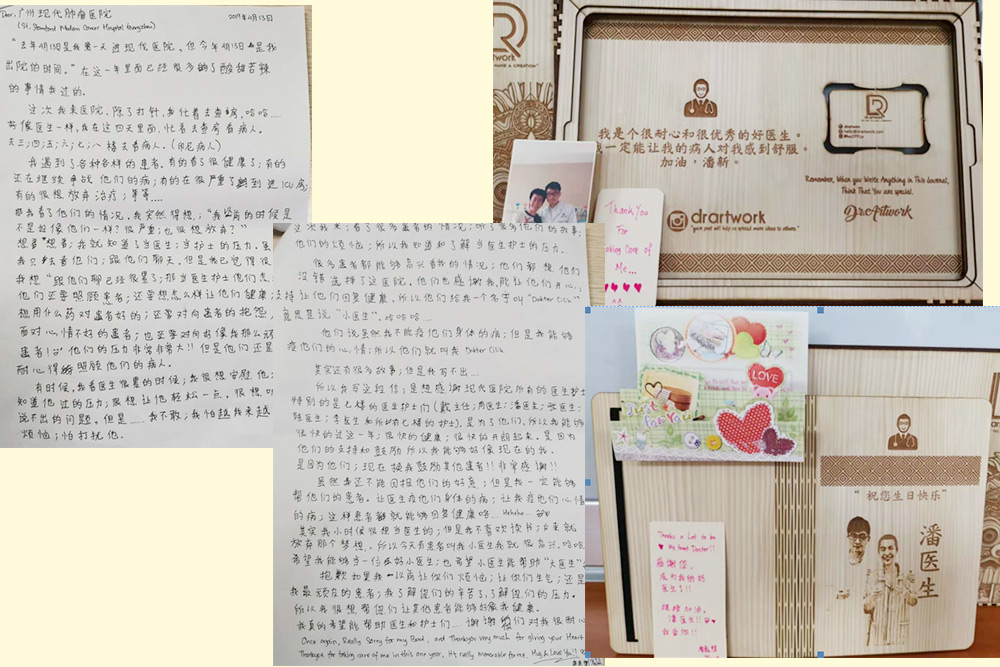 Dear, 广州现代肿瘤医院
2019年4月13日
(St. Stamford Modern Cancer Hospital Guangzhou)
"去年4月13日是我第一天进现代医院，但今年4月13日是我
出院的时间。"在这一年里面已经很多
酸甜苦辣
的事情我过的。
这次我来医院，除了打针，我忙着去查房，哈哈...
好像医生一样，我在这四天里面，忙着去查房看病人。
去三；四；五；六；七；八楼去看病人。(印尼病人)
我遇到了各种各样的患者。有的看了很健康了；有的
还在继续争战他们的病；有的在很严重了
到进ICU房
有的很想放弃治疗；等等...
我看了他们的情况，我突然得想；"我以前的时候是
不是好像他们一样？很严重；也很想放弃？"
想着"想着；我就知道了当医生；当护士的压力。
我只去看他们；跟他们聊天，但是我已觉得很
我想"跟他们聊已经很累了；那当医生护士他们怎
他们还要照顾患者；还要想怎么样让他们健康；
想用什么药对患者好的；还要对向患者的抱怨，
面对心情不好的患者；也还要对向好像我那么顽
患者！
他们的压力非常非常大！！但是他们还是
耐心得的照顾他们的病人。
有时候，我看医生很累的时候；我很想安慰他；
知道他过的压力；很想让他轻松一点，很想听
说不出的问题。但是......我不敢；我怕越我来越
烦恼；怕打扰他。
他们的烦恼；所以我知道和了解当医生护士的压力。
很多患者都能够高兴看我的情况；他们都想他们
没错选择了这医院。他们也感谢我。我能让他们开心；
支持让他们回复健康，所以他们给我一个名字叫 "Dokter Cilik"
意思是说"小医生"。哈哈哈...
他们说虽然我不能疗他们身体的病；但是我能够
疗他们的心情；所以他们就叫我 Dokter Cilik
其实还有很多故事；但是我写不出...
所以我写这个信；是想感谢现代医院所有的医生护士
特别的是七楼的医生护士们
是为了他们，所以我能够
很快的过这一年；很快的健康；很快的开朗起来。是因为
他们的支持和鼓励所以我能够好像现在的我。
是因为他们；现在换我鼓励其他患者！！非常感谢！！
虽然我还不能回报他们的好意；但是我一定能够
帮他们的患者。让医生疗他们身体的病；让我疗他们心情
的病；这样患者都就能够回复健康哈... Hehehe...
其实我小时候很想当医生的；但是我不喜欢读书；后来就
放弃那个梦想。所以今天有患者叫我小医生我就很高兴，哈哈
希望我能够当一位好小医生；也希望小医生能帮助"大医生"
抱歉如果我以前让你们烦恼；让你们生气；还是
我最顽皮的患者；我了解你们的辛苦了，了解你们的压力。
所以我很想帮你们让其他患者能够好像我健康。
我真的希望能帮助医生和护士们...谢谢你们对我很耐心
Once again, Really Sorry for my Bad, and Thankyou very much for giving your Heart
Thankyou for taking care of me in this one year, It's really memorable for me. Hug & Love You!!
artwork
MAKE A CREATION
我是个很耐心和很优秀的好医生。
我一定能让我的病人对我感到舒服。
加油，潘新。
drartwork
hello@drartwork.com
Remember, When you Write Anything in This Journal,
Think That You are special.
Dr.ArtWork
drartwork
"your post will help us spread more ideas to others"
Thank You
For
Taking Care of
Me...
LOVE
Just
for You
Thanks a Lot to be
My Great Doctor!!
感谢您，
成为我的好
医生了！！
继续加油，
潘医生！！
"祝您生日快乐"
潘医生